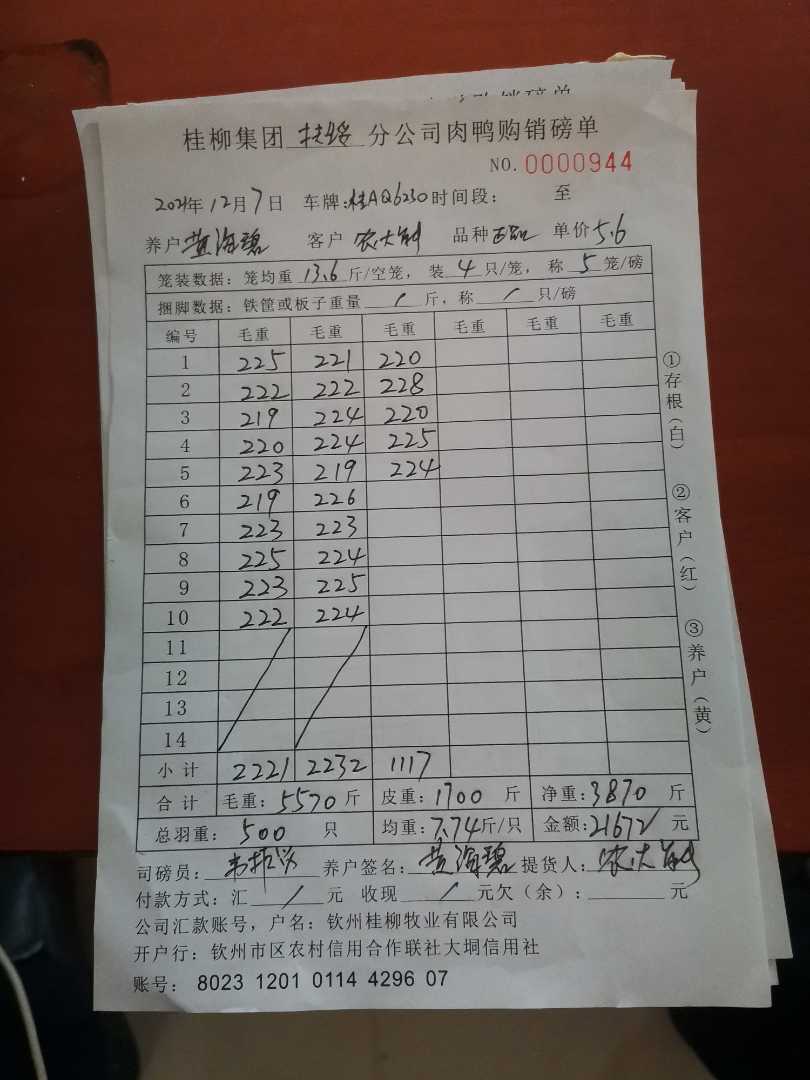 桂柳集团 扶绥 分公司肉鸭购销磅单
NO. 0000944
2021年12月7日 车牌:桂AQ6230 时间段: 至
养户 黄海碧 客户 农大 品种 正品 单价 5.6
笼装数据:笼均重 13.6 斤/空笼, 装 4 只/笼, 称 5 笼/磅
捆脚数据:铁筐或板子重量 / 斤,称 / 只/磅
编号 毛重 毛重 毛重 毛重 毛重 毛重
1 225 221 220
2 222 222 228
3 219 224 220
4 220 224 225
5 223 219 224
6 219 226
7 223 223
8 225 224
9 223 225
10 222 224
11
12
13
14
小计 2221 2232 1117
合计 毛重:5570 斤 皮重:1700 斤 净重:3870 斤
总羽重: 500 只 均重:7.74斤/只 金额:21672 元
司磅员: 养户签名: 黄海碧 提货人: 农大
付款方式:汇 / 元 收现 / 元欠(余): 元
公司汇款账号,户名:钦州桂柳牧业有限公司
开户行:钦州市区农村信用合作联社大垌信用社
账号: 8023 1201 0114 4296 07
①存根(白)
②客户(红)
③养户(黄)